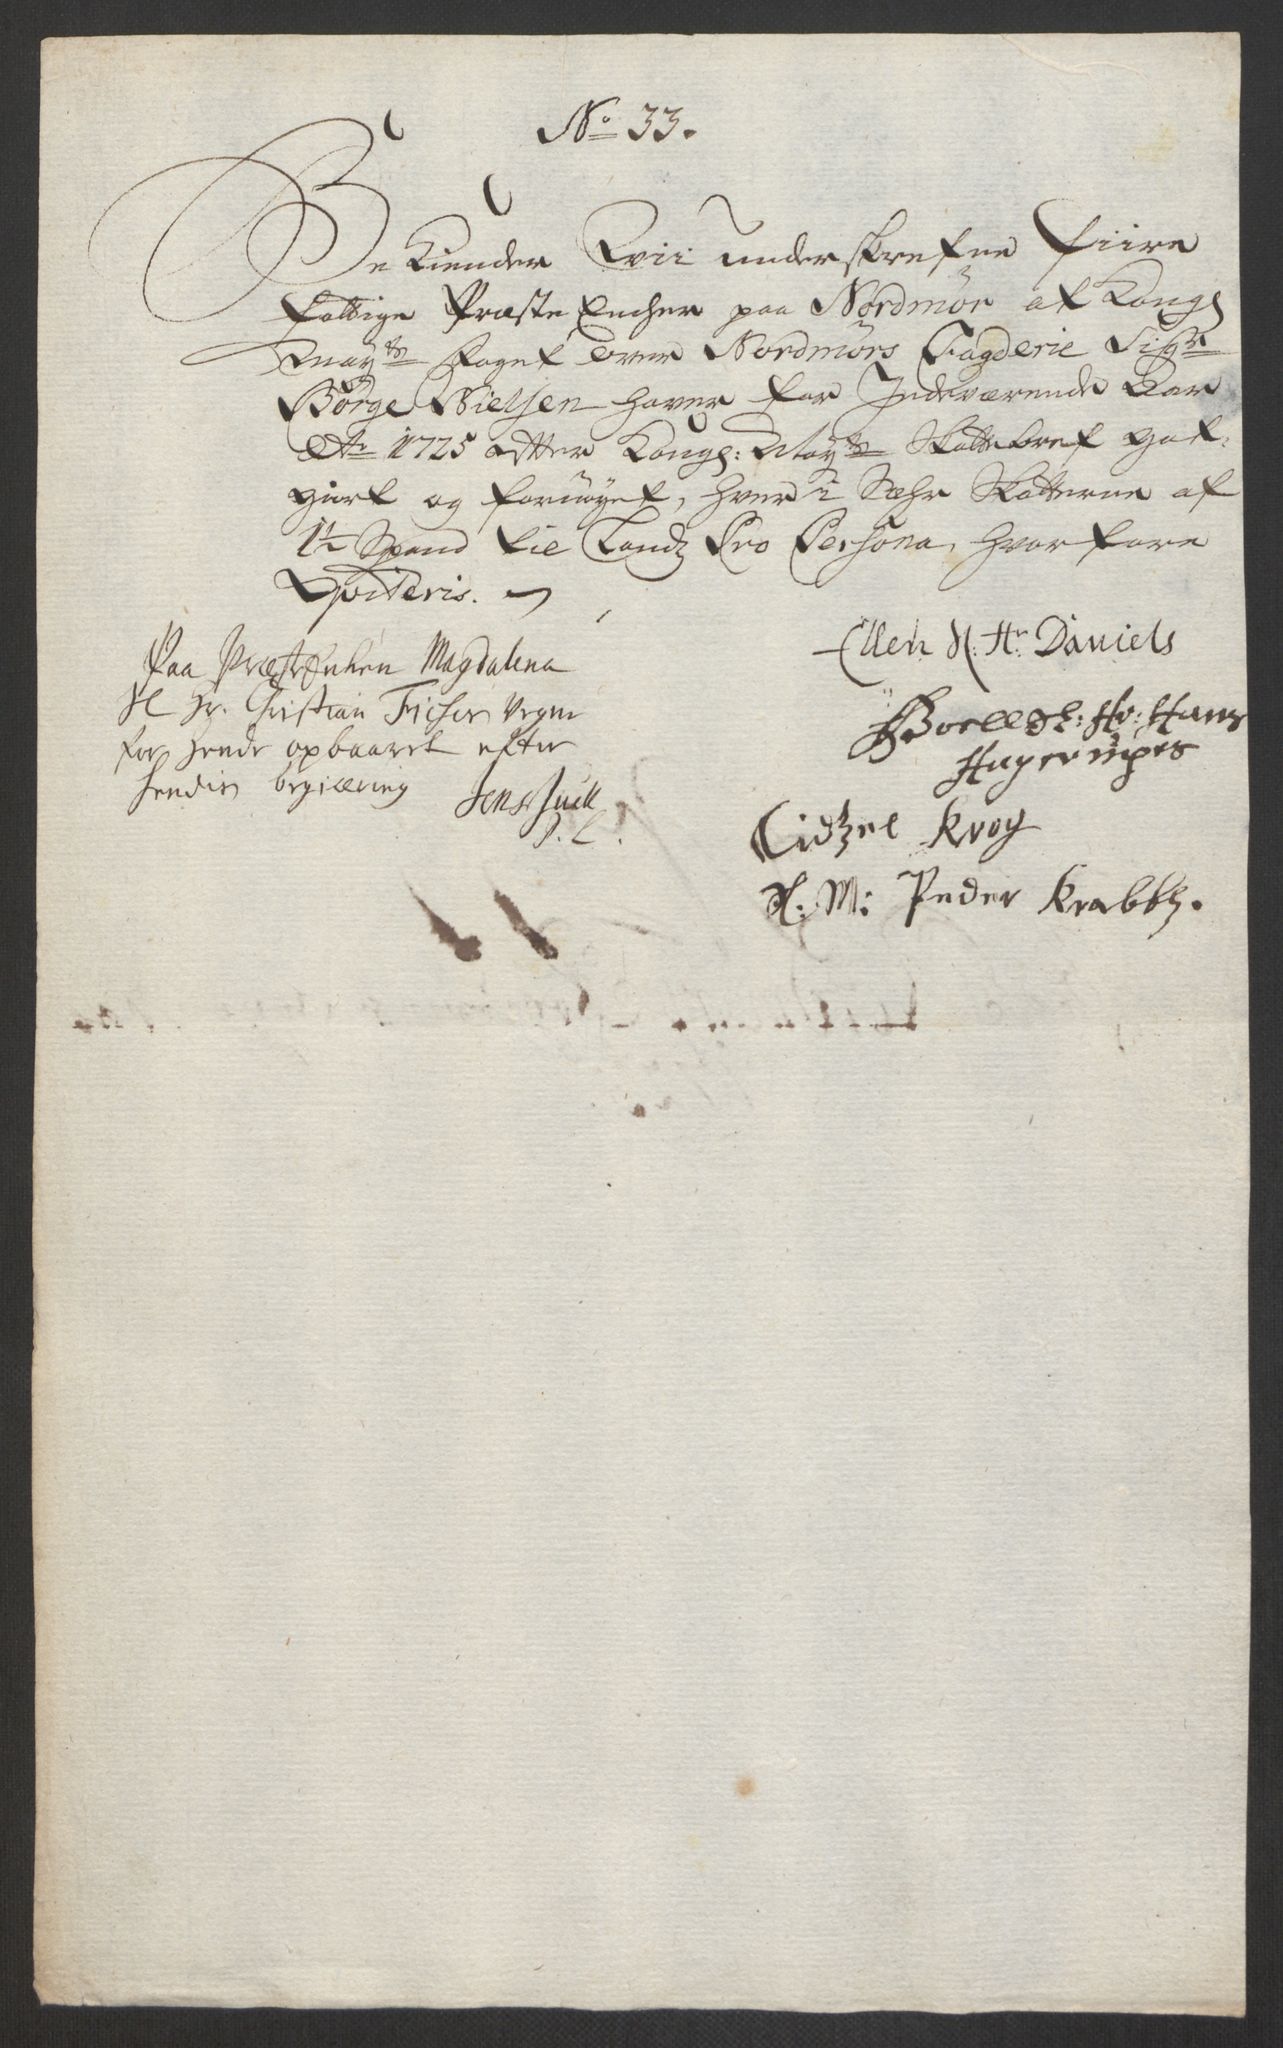 No 33.
Bekiender Wii underskrefne fiire
fattige Præste Encher paa Nordmør at Kongl
May:ts Foget over Nordmørs Fogderie Sigr
Børge Nielsen haver for Indeværende Aar
Ao 1725 efter Kongl: May:ts Skattebref got-
giort og fornøyet, hver i Sæhr Skatterne af
1½ Spand fie Landz Pro Persona, hvorfore
Qviteris.
Paa PræstEnken Magdalena
Sl Hr. Christian Ficher vegne
for hende opbaaret efter
hendis begiæring Jens Juell
Ellen Sl. Hr Daniels
Boell Sl: Hr: Hans
Hagerupes
Cidzel Krog
Sl. M: Peder Krabbes.